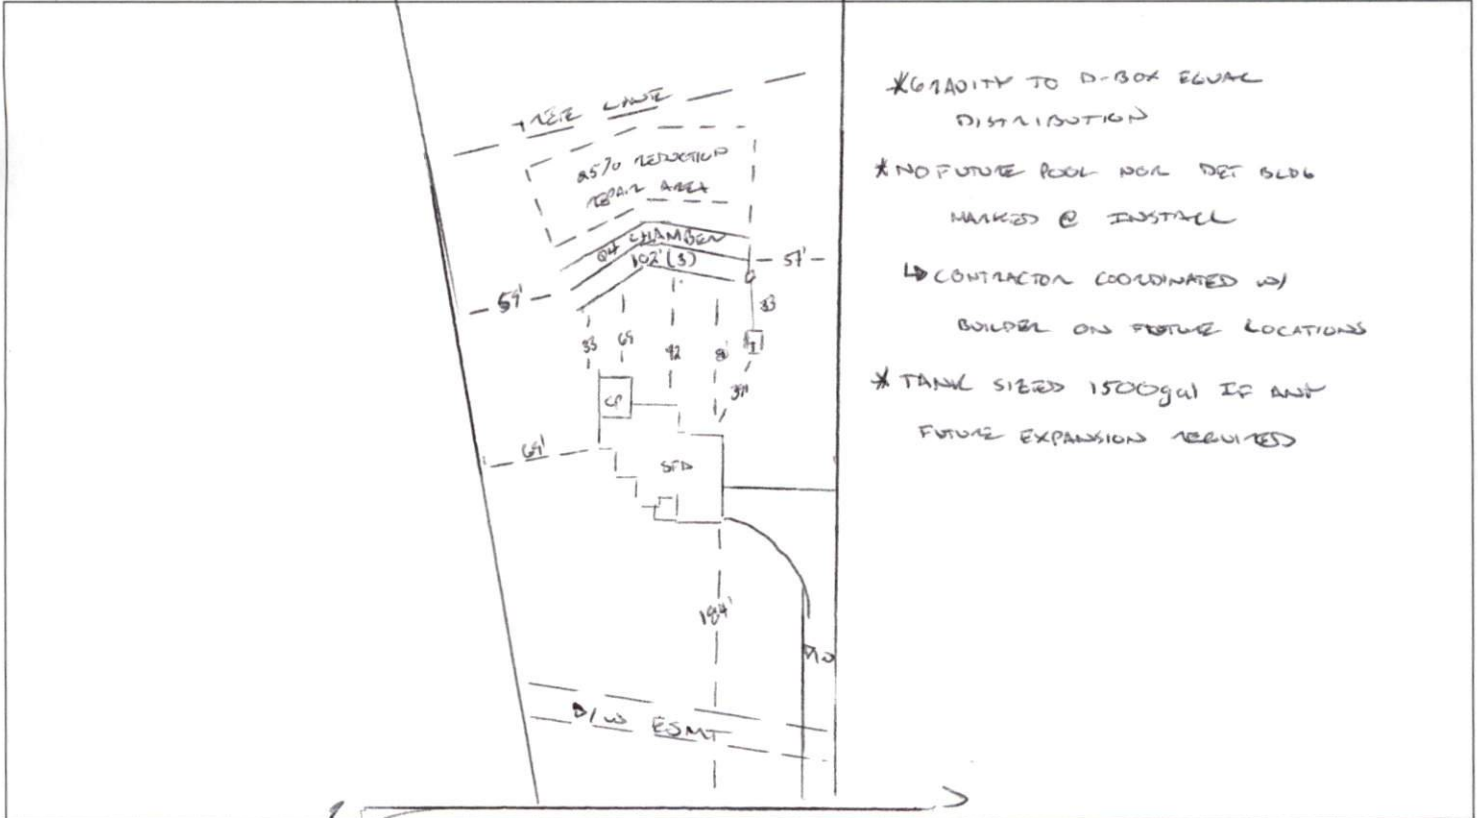 TREE LINE
25% REDUCTION
REPAIR AREA
Q4 CHAMBER
102' (3)
57'
59'
33
33
69
92
8
37'
T
CP
69'
SFD
184'
D/W ESMT
*GRAVITY TO D-BOX EQUAL
DISTRIBUTION
*NO FUTURE POOL NOR DET BLDG
MARKED @ INSTALL
↳CONTRACTOR COORDINATED W/
BUILDER ON FUTURE LOCATIONS
*TANK SIZED 1500gal IF ANY
FUTURE EXPANSION REQUIRED